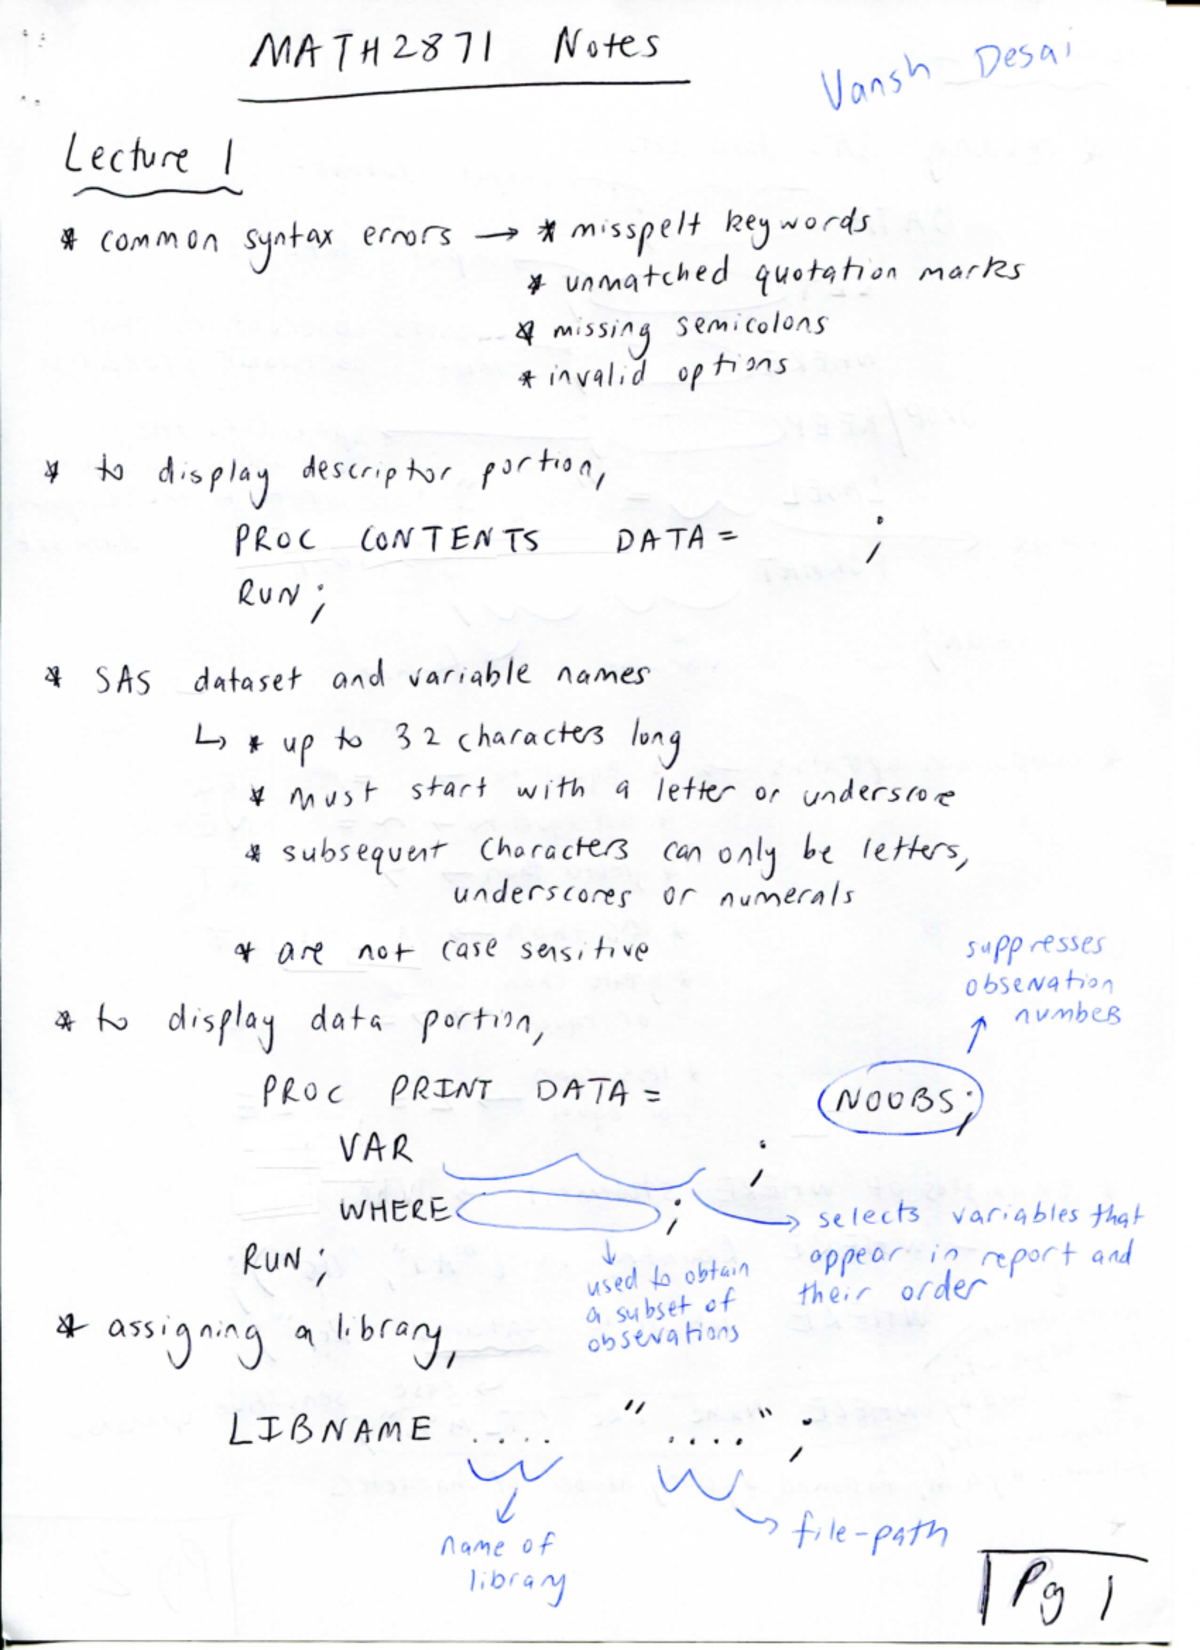 MATH2871 Notes
Vansh Desai
Lecture 1
* common syntax errors → * misspelt keywords
* unmatched quotation marks
* missing semicolons
* invalid options
* to display descriptor portion,
PROC CONTENTS DATA = ;
RUN;
* SAS dataset and variable names
↳ * up to 32 characters long
* must start with a letter or underscore
* subsequent characters can only be letters,
underscores or numerals
* are not case sensitive
* to display data portion,
suppresses
observation
numbers
PROC PRINT DATA = NOOBS;
VAR ;
WHERE ;
RUN;
selects variables that
appear in report and
their order
used to obtain
a subset of
observations
* assigning a library,
LIBNAME .... "....";
name of
library
file-path
Pg 1